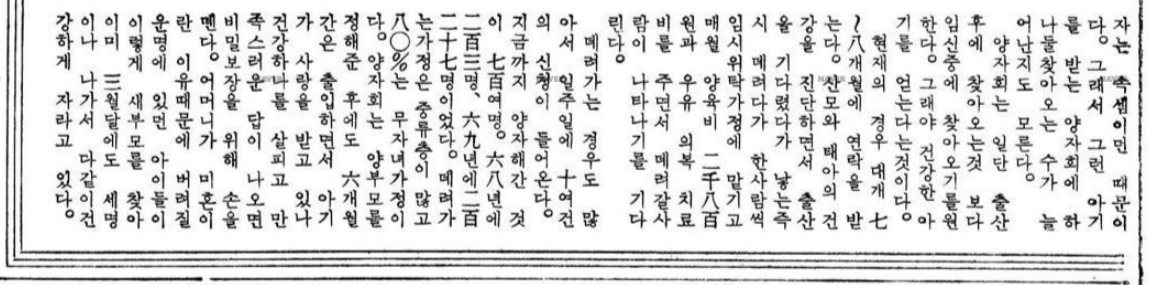 자는 속셈이던 때문이
다。 그래서 그런 아기
를 받는 양자회에 하
나둘찾아오는 수가 늘
어난지도 모른다。
양자회는 일단 출산
후에 찾아오는것 보다
임신중에 찾아오기를원
한다。 그래야 건강한 아
기를 얻는다는것이다。
현재의 경우 대개 七
~八개월에 연락을 받
는다。 산모와 태아의 건
강을 진단하면서 출산
을 기다렸다가 낳는즉
시 데려다가 한사람씩
임시위탁가정에 맡기고
매월 양육비 二千八百
원과 우유 의복 치료
비를 주면서 데려갈사
람이 나타나기를 기다
린다。
데려가는 경우도 많
아서 일주일에 十여건
의 신청이 들어온다。
지금까지 양자해간 것
이 七百여명。 六八년에
二百三명、 六九년에二百
二十七명이었다。 데려가
는가정은 중류층이 많고
八〇%는 무자녀가정이
다。 양자회는 양부모를
정해준 후에도 六개월
간은 출입하면서 아기
가 사랑을 받고 있나
건강하나를 살피고 만
족스러운 답이 나오면
비밀보장을 위해 손을
뗀다。 어머니가 미혼이
란 이유때문에 버려질
운명에 있던 아이들이
이렇게 새부모를 찾아
이미 三월달에도 세명
이나 나가서 다같이건
강하게 자라고 있다。